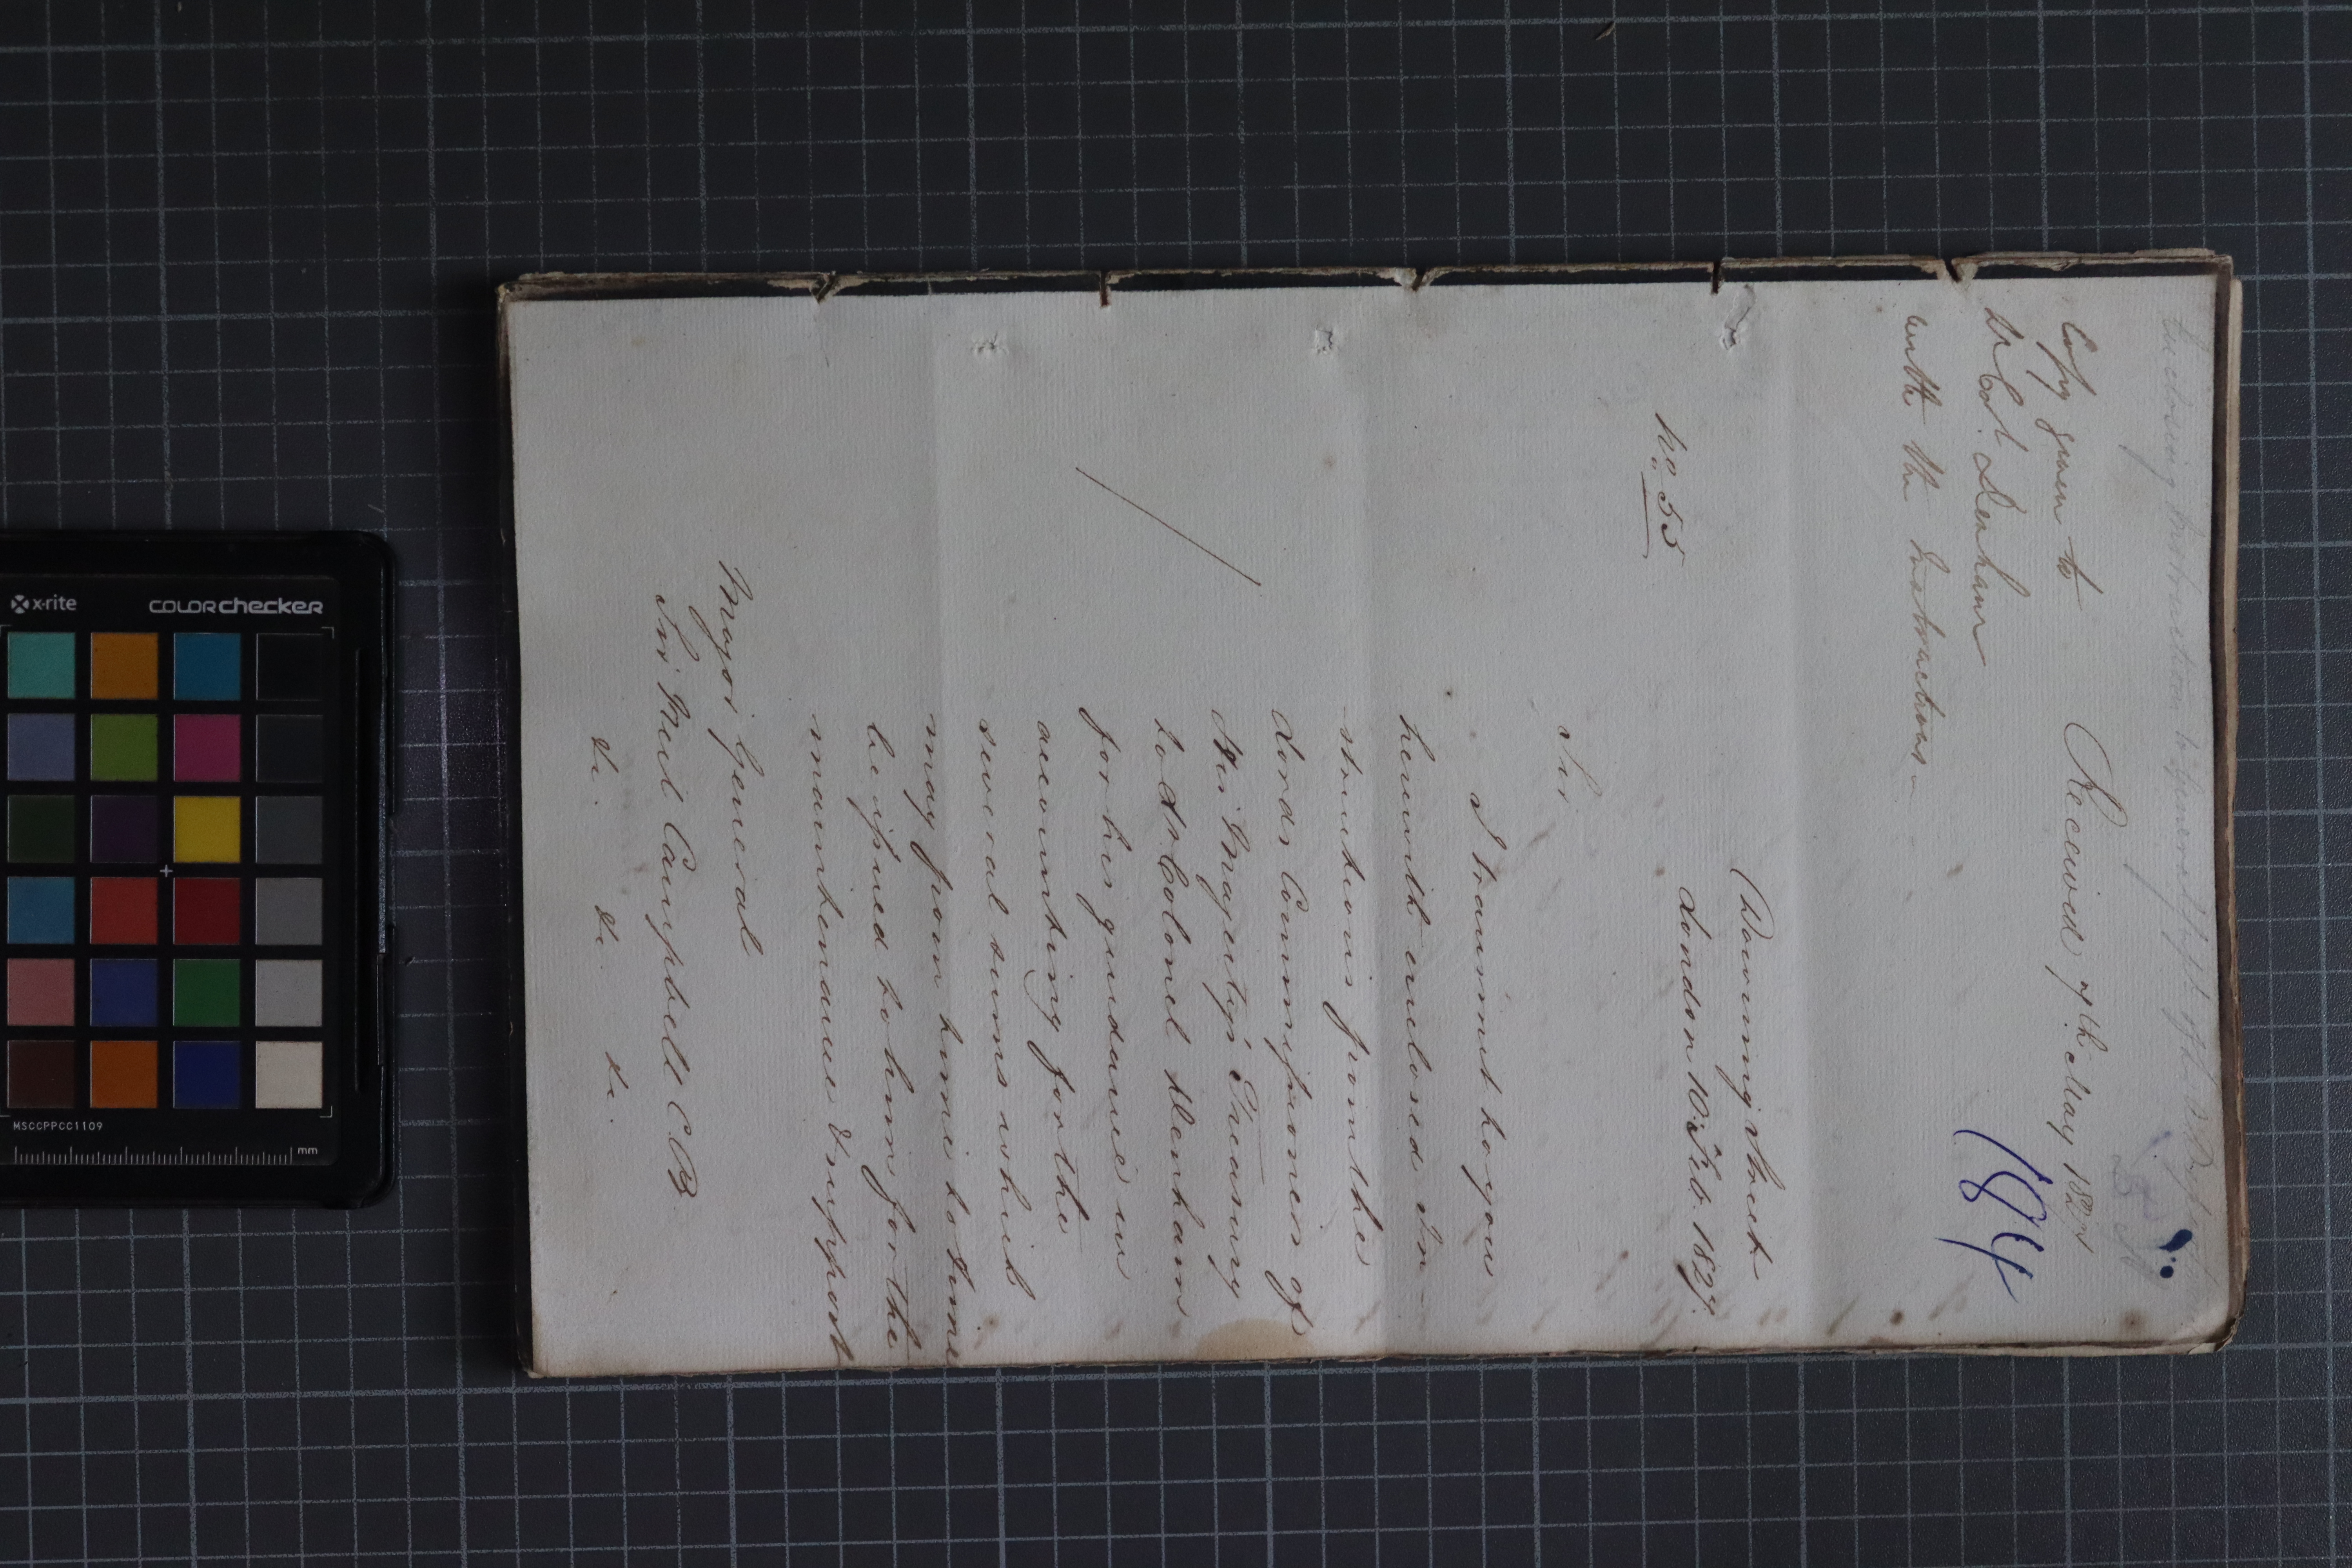 Enclosing Instructions
Copy given to
Lt Col. Denham
with the Instructions
Received 7th May 1827
184
Downing Street
London 10 Feb. 1827.
No. 55
Sir,
I transmit to you
herewith enclosed In
structions from the
Lords Commissioners of
His Majesty's Treasury
to Lt Colonel Denham
for his guidance in
accounting for the
several sums which
may from time to time
be issued to him for the
maintenance & support
Major General
Sir Neil Campbell C.B.
&c. &c. &c.
x-rite
COLORchecker
MSCCPPCC1109
mm